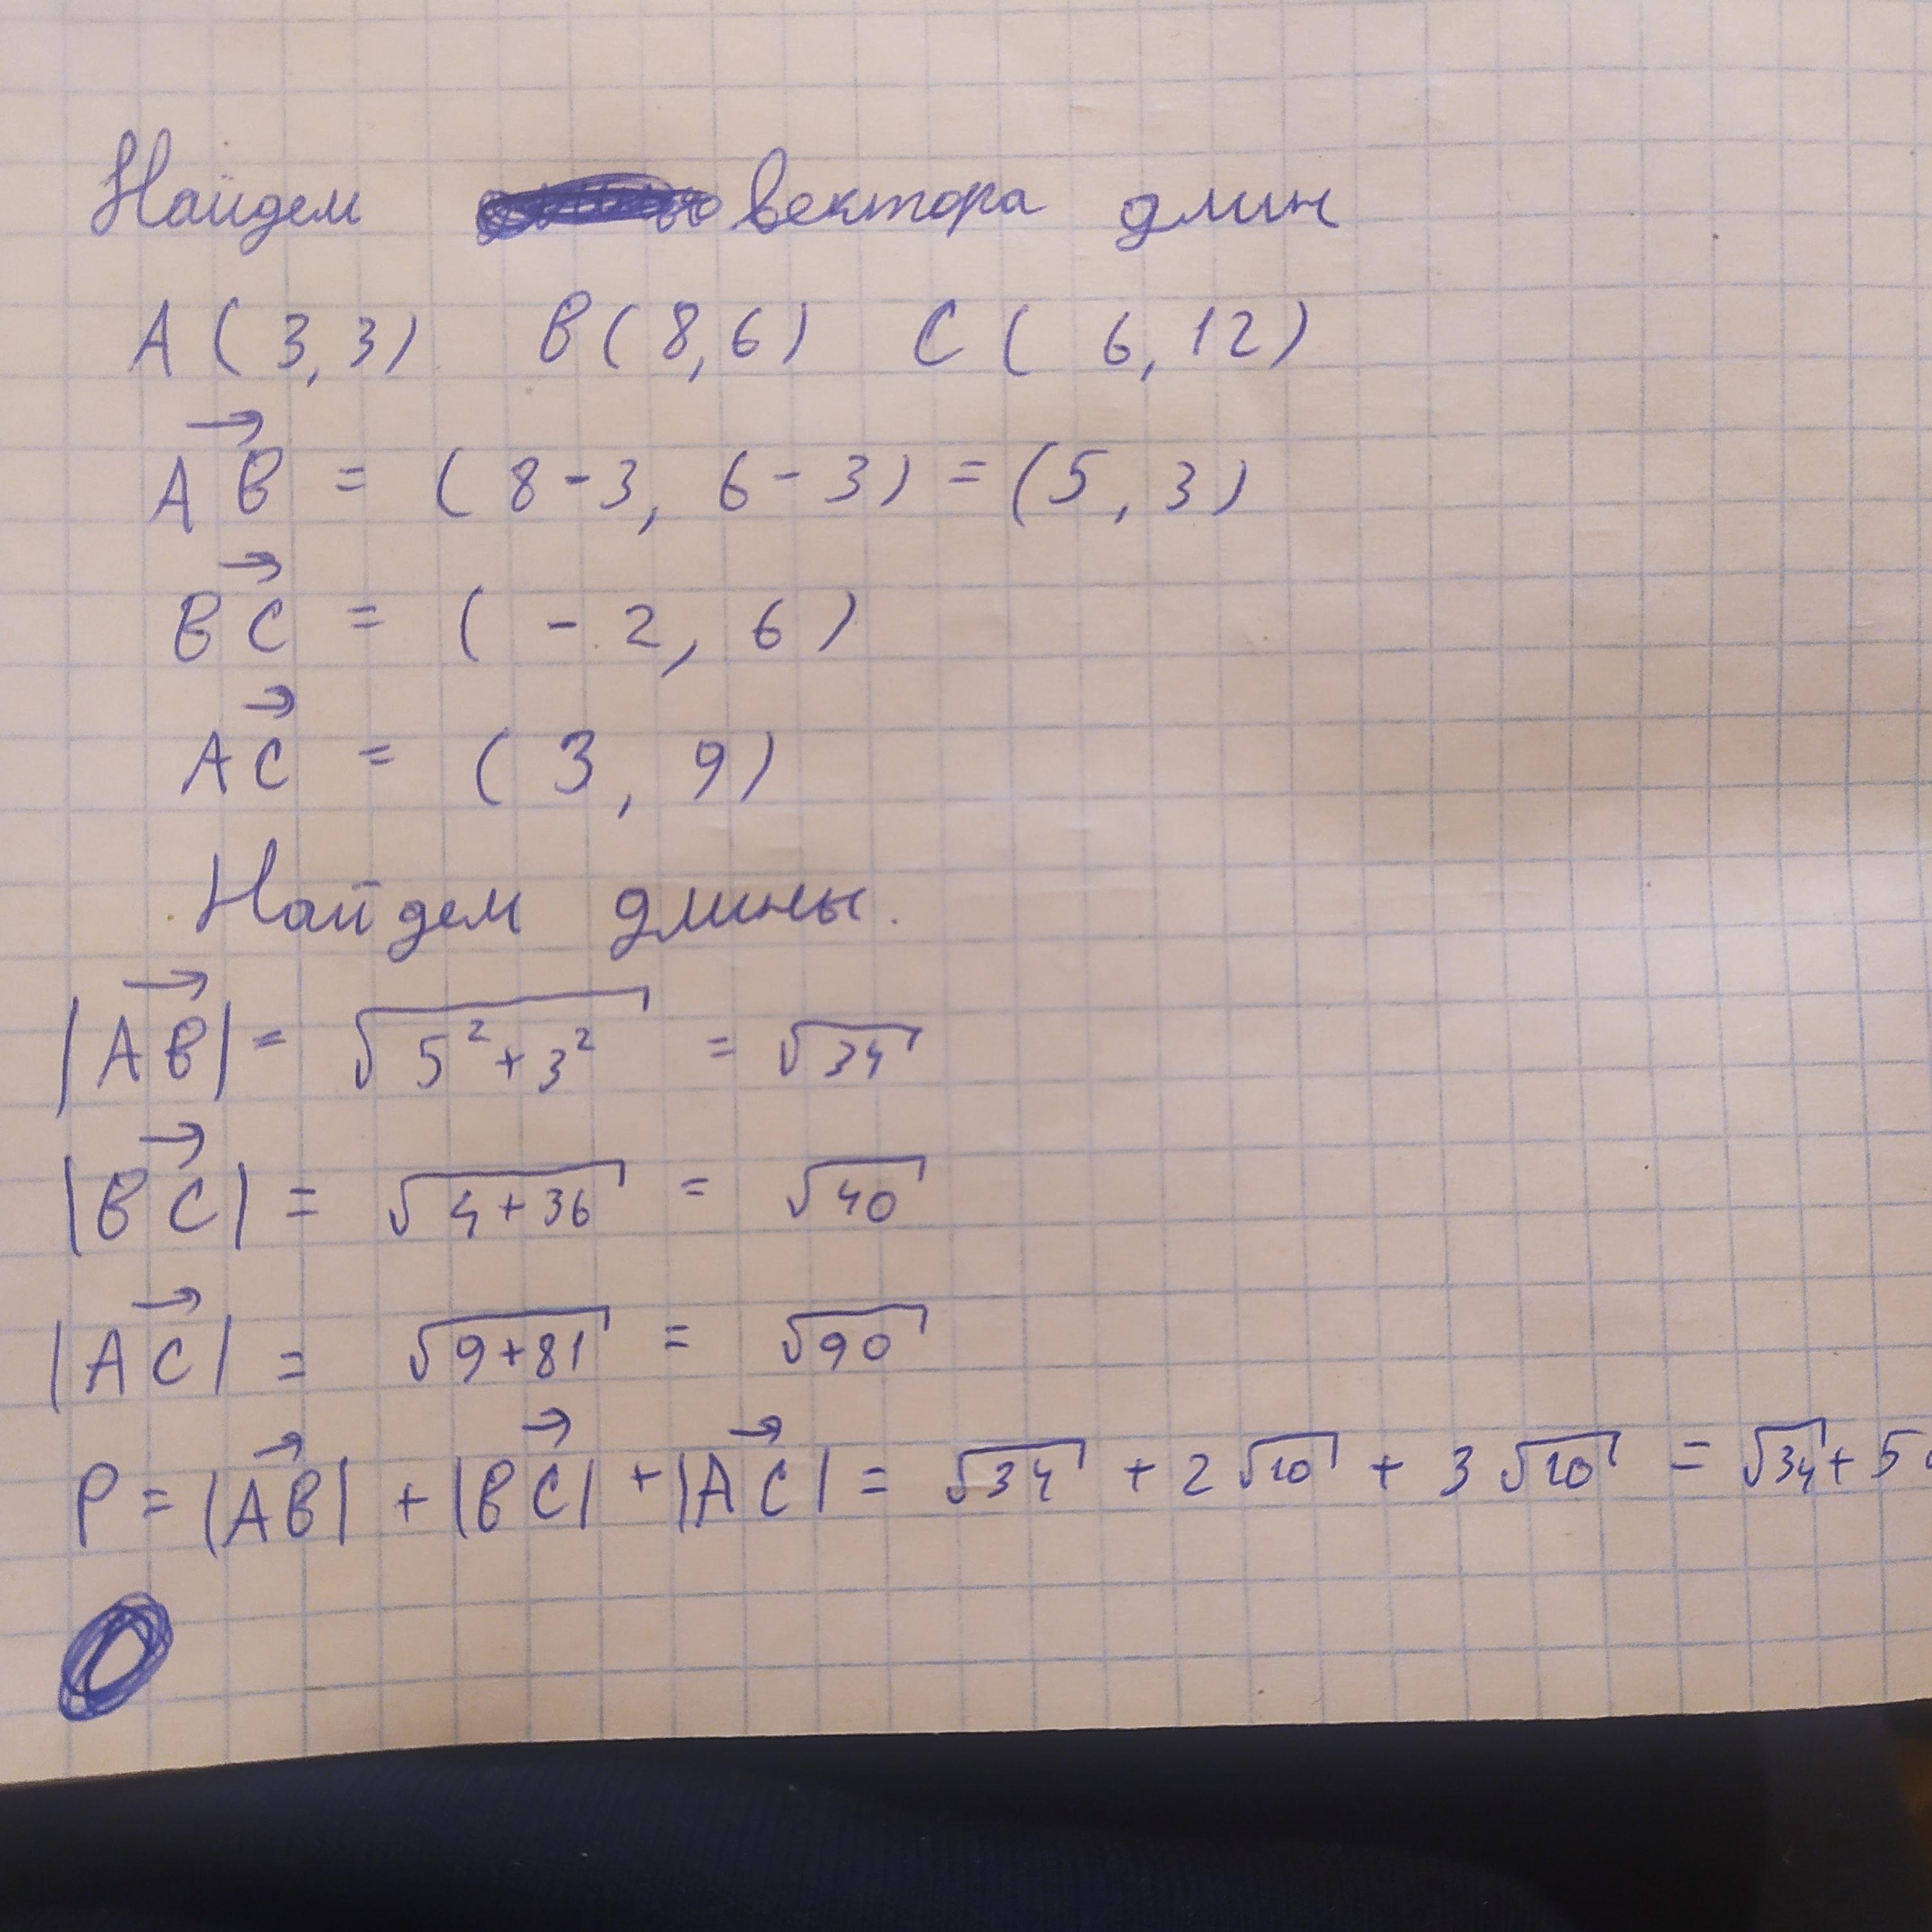 Найдем вектора длин
A(3,3) B(8,6) C(6,12)
→AB = (8-3, 6-3) = (5,3)
→BC = (-2, 6)
→AC = (3, 9)
Найдем длины.
|→AB| = √(5²+3²) = √34
|→BC| = √(4+36) = √40
|→AC| = √(9+81) = √90
P = |→AB| + |→BC| + |→AC| = √34 + 2√10 + 3√10 = √34 + 5